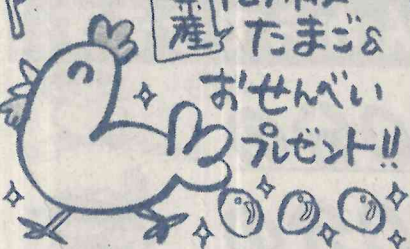 産
たまご&
おせんべい
プレゼント!!